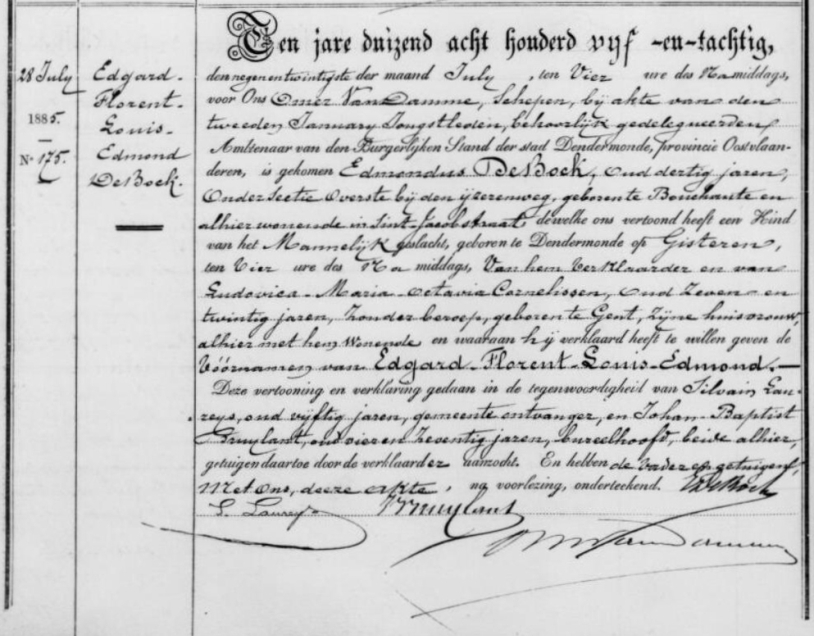 28 July
1885.
N° 175.
Edgard-
Florent-
Louis-
Edmond
DeBock.
Ten jare duizend acht honderd vyf -en-tachtig,
den negenentwintigste der maand July , ten Vier ure des Namiddags,
voor Ons Omer VanDamme, Schepen, by akte van den
tweeden January Jongstleden, behoorlyk gedelegueerden,
Ambtenaar van den Burgerlijken Stand der stad Dendermonde, provincie Oostvlaan-
deren, is gekomen Edmondus DeBock, Oud dertig jaren,
Onder Sectie Overste by den yzerenweg, geboren te Bouchaute en
alhier wonende in Sint-Jacobstraat, dewelke ons vertoond heeft een Kind
van het Mannelyk geslacht, geboren te Dendermonde op Gisteren,
ten Vier ure des Na middags, Van hem Verklaarder en van
Ludovica-Maria-Octavia Cornelissen, Oud Zeven en
twintig jaren, Zonder beroep, geboren te Gent, Zyne huisvrouw,
alhier met hem Wonende en waaraan hy verklaard heeft te willen geven de
Vóórnamen van Edgard-Florent-Louis-Edmond.—
Deze vertooning en verklaring gedaan in de tegenwoordigheid van Silvain Lau-
reys, oud vyftig jaren, gemeente ontvanger, en Johan-Baptist
Pruylant, oud vier en Zeventig jaren, bureelhoofd, beide alhier,
getuigen daartoe door de verklaarder aanzocht. En hebben de Vader en getuigen,
Met Ons, deze akte, na voorlezing, onderteekend. DeBock
S. Laureys Pruylant
VanDamme